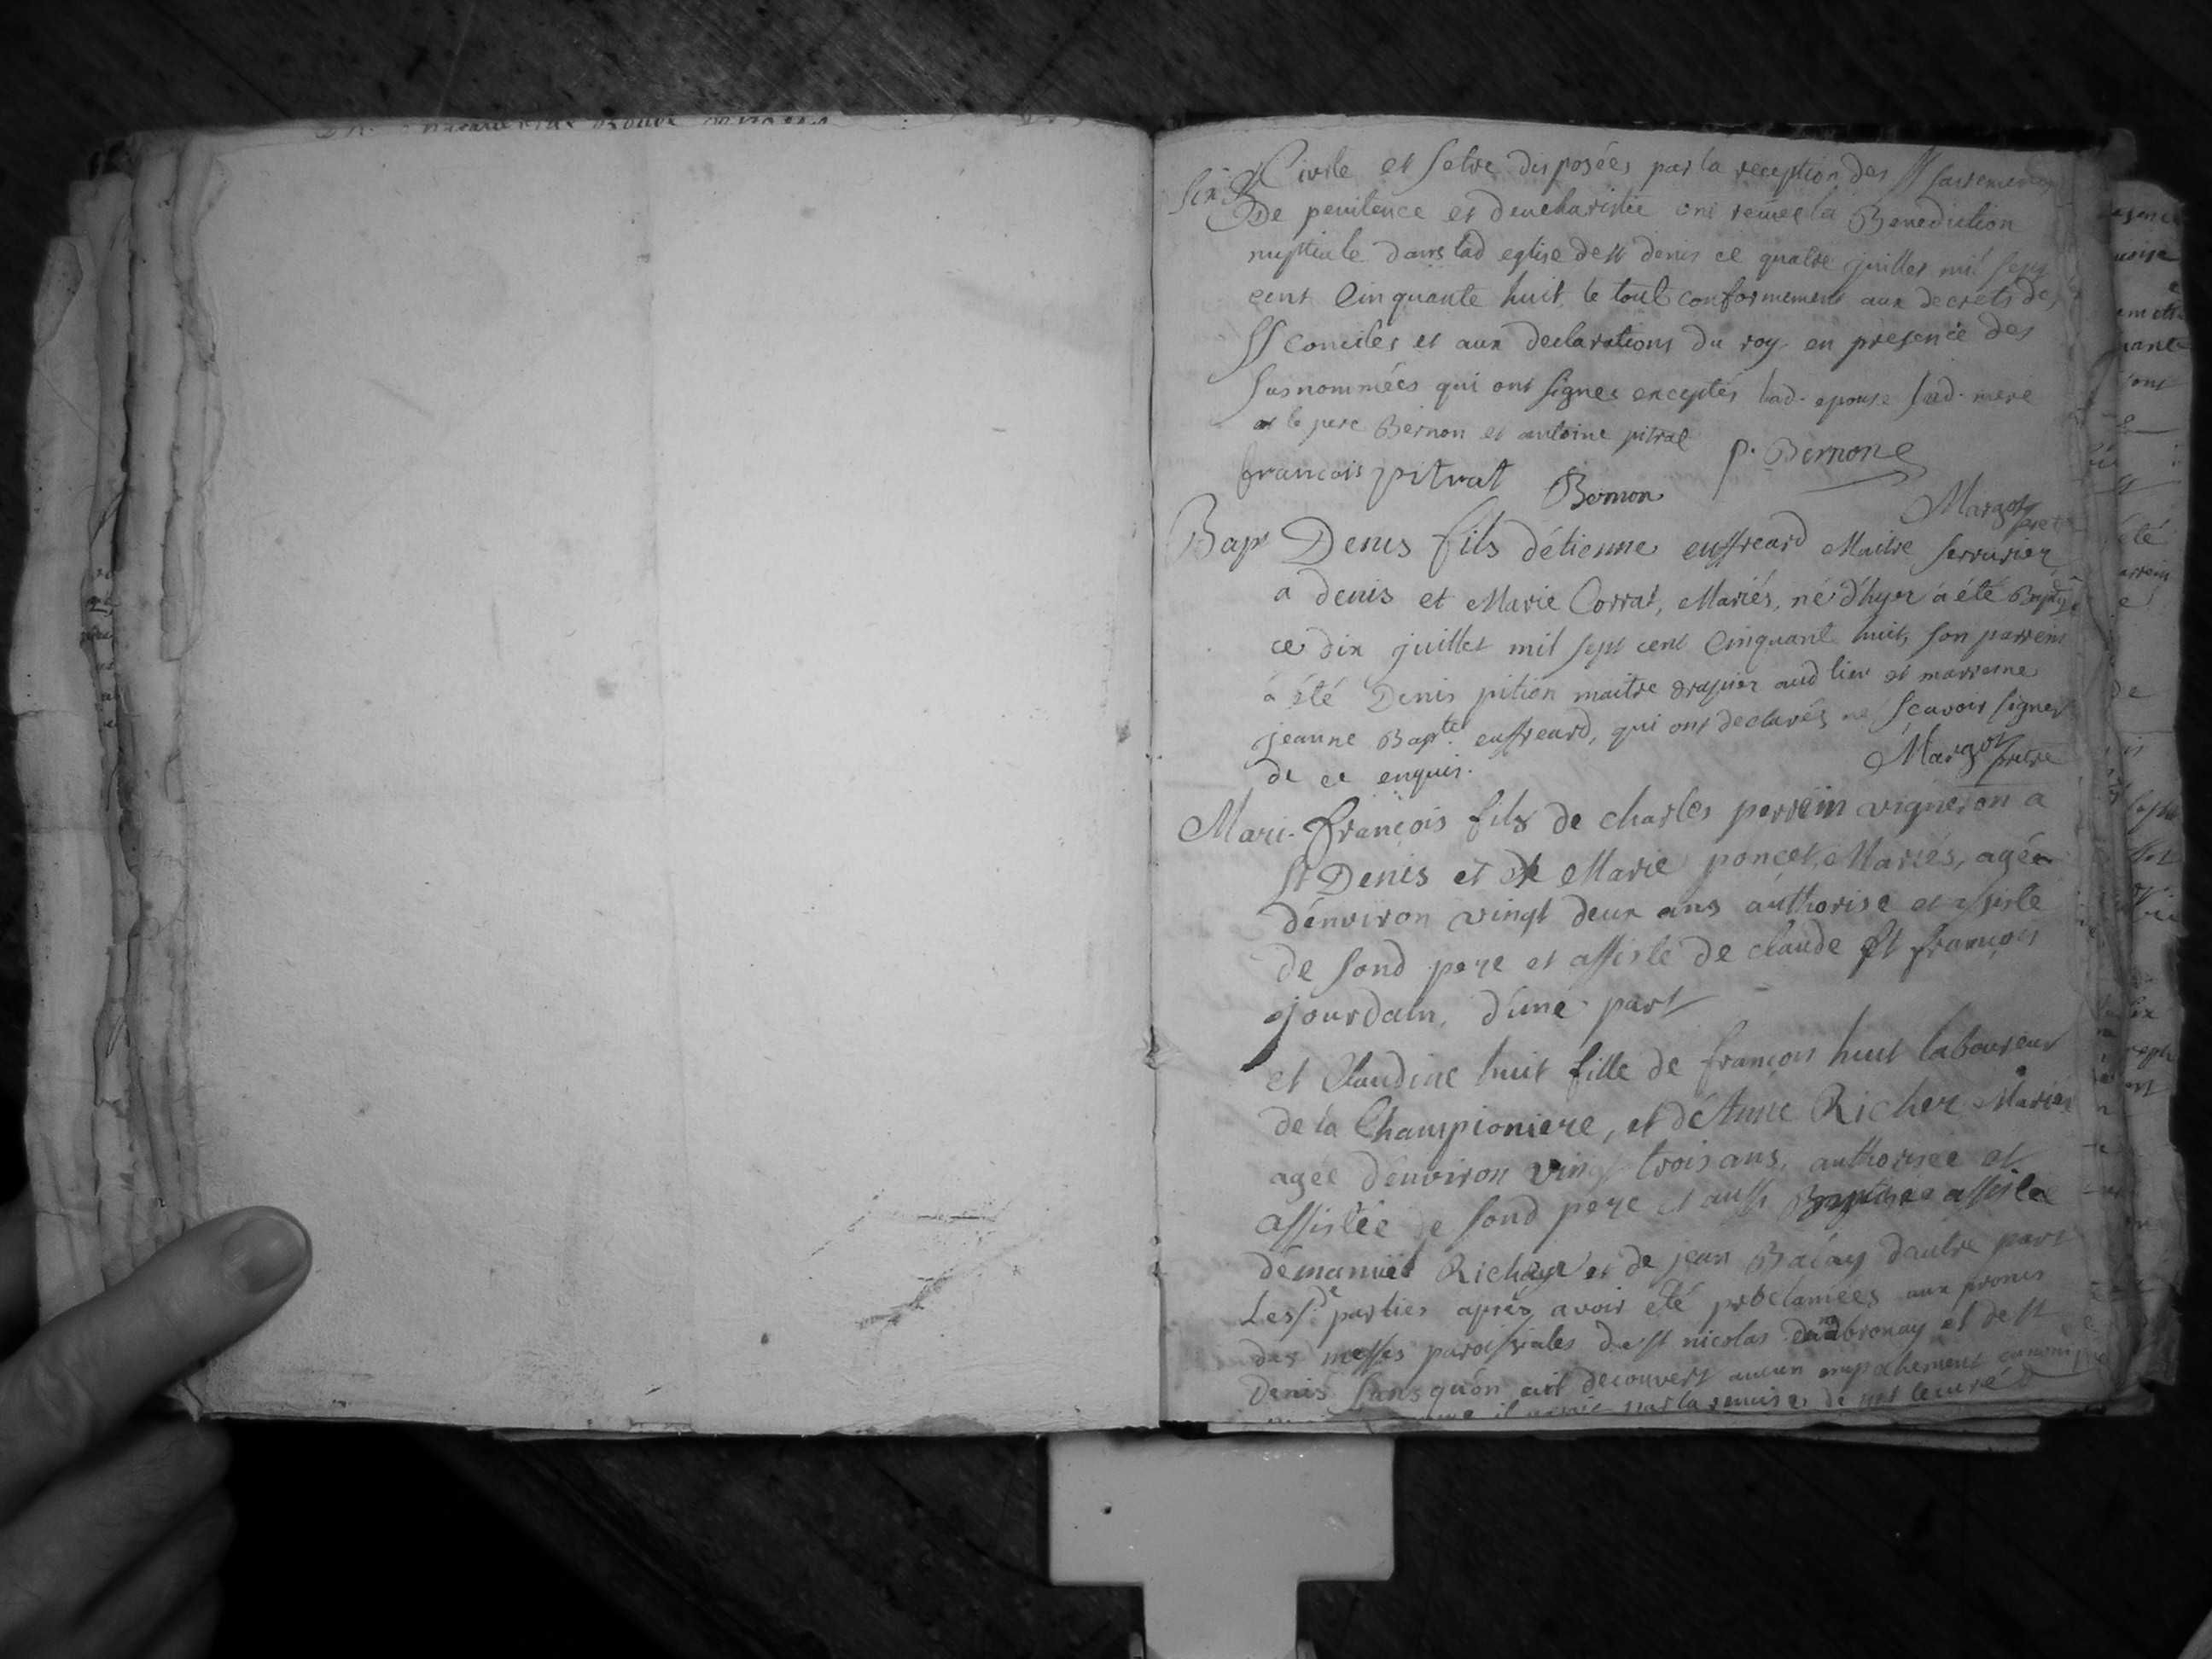 Civile et setre disposées par la reception des SS sacremens
De penitence et deucharistie ont receue la Benediction
nuptiale dans lad eglise de st denis ce quatre juillet mil sept
cent Cinquante huit, le tout conformement aux decrets des
SS conciles et aux declarations du roy en presence des
susnommées qui ont signes exceptés lad. epouse sad. mere
et le pere Bernon et antoine pitrat
francois pitrat Bernon p. Bernon
Margot pretre
Bapt Denis fils détienne euffreard Maitre serrurier
a denis et Marie Corrat, Mariés, né d'hyer a été Baptisé
ce dix juillet mil sept cent Cinquante huit, son parrein
a été Denis pition maitre drapier aud lieu et marreine
jeanne Bapte. euffreard, qui ont declarés ne sçavoir signer
de ce enquis. Margot pretre
Mari. françois fils de charles perrein vigneron a
st Denis et de Marie poncet, Mariés, agée
d'environ vingt deux ans authorise et assiste
de sond pere et assiste de claude et françois
jourdain, d'une part
et Claudine huit fille de françois huit laboureur
de la Championiere, et d'Anne Richer Mariés
agée d'environ vingt trois ans, authorisée et
assistée de sond pere et aussi assistée
démanuel Richer et de jean Balay d'autre part
Les sd parties après avoir été proclamées aux prones
des messes paroissiales de st nicolas dambronay et de st
Denis sans qu'on ait decouvert aucun empechement canonique
par la remise de mr le curé